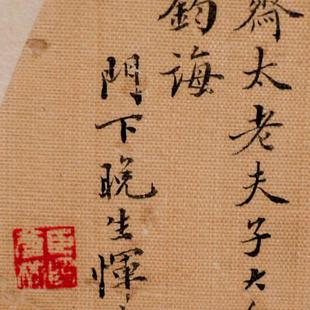 齋太老夫子大
鈞誨
門下晚生惲